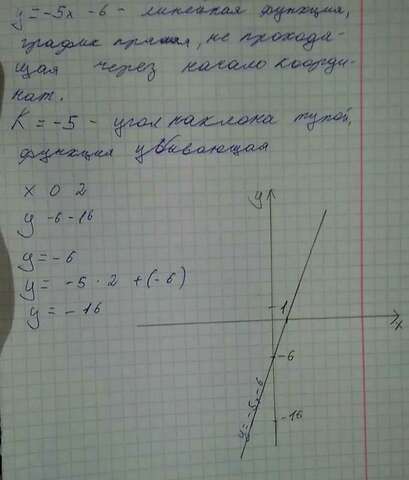 y = -5x - 6 - линейная функция,
график прямая, не проходя-
щая через начало коорди-
нат.
K = -5 - угол наклона тупой,
функция убывающая
x 0 2
y -6 -16
y = -6
y = -5 · 2 + (-6)
y = -16
y
1
x
-6
-16
y = -5x-6